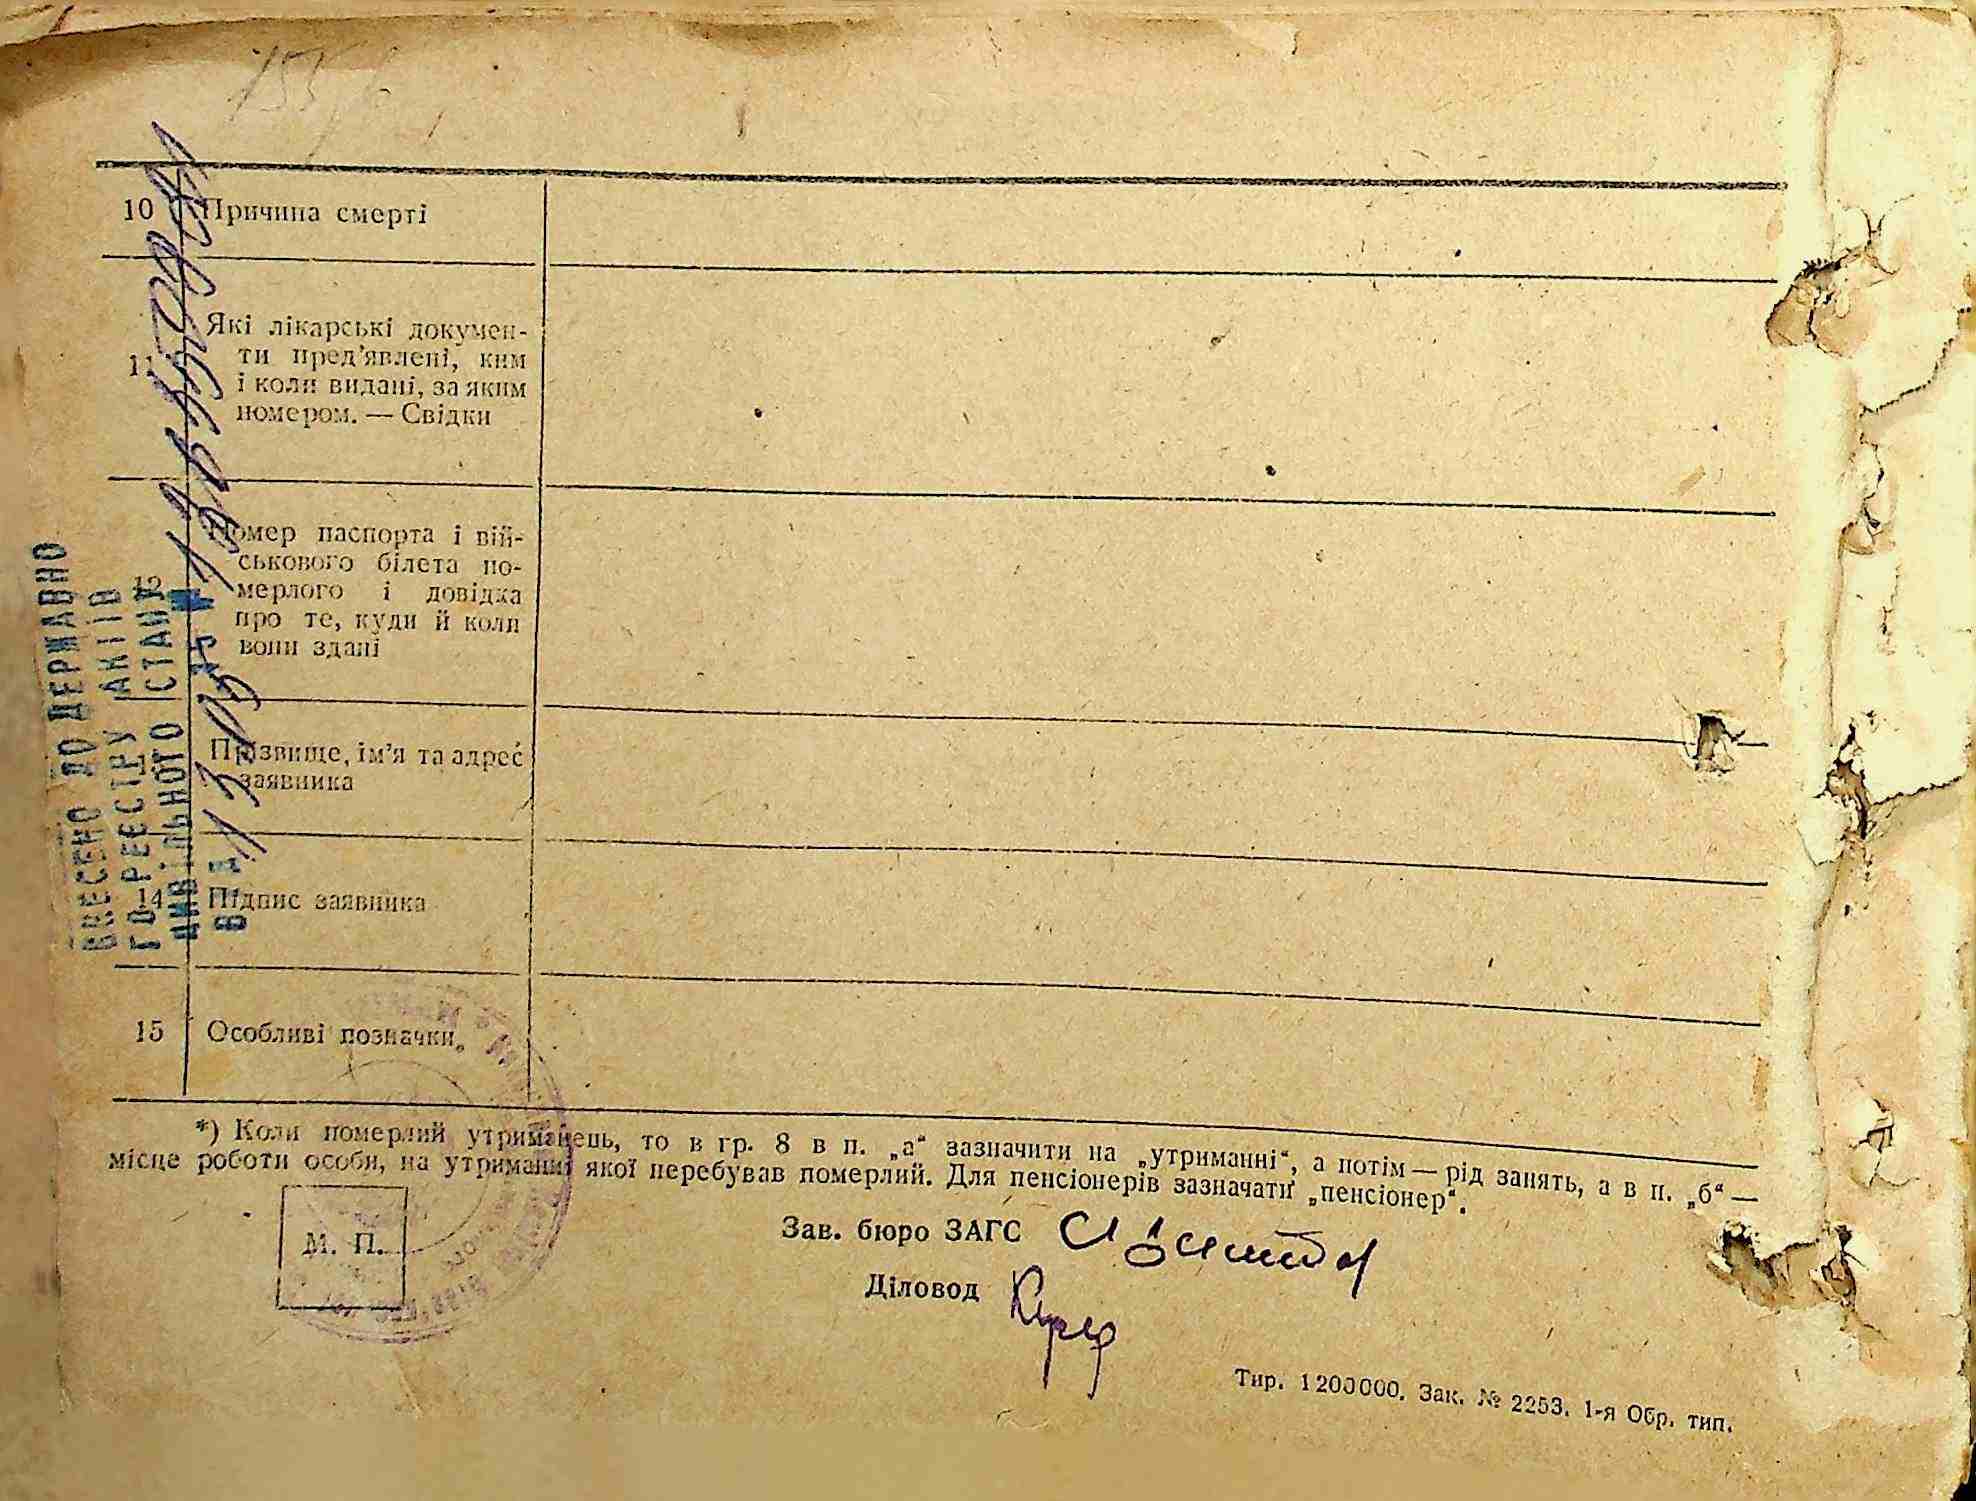 10 Причина смерті
11 Які лікарські докумен-
ти пред'явлені, ким
і коли видані, за яким
номером. — Свідки
12 Номер паспорта і вій-
ськового білета по-
мерлого і довідка
про те, куди й коли
вони здані
Прізвище, ім'я та адрес
заявника
14 Підпис заявника
15 Особливі позначки
*) Коли померлий утриманець, то в гр. 8 в п. „а“ зазначити на „утриманні“, а потім — рід занять, а в п. „б“ —
місце роботи особи, на утриманні якої перебував померлий. Для пенсіонерів зазначати „пенсіонер“.
М. П.
Зав. бюро ЗАГС
Діловод
Тир. 1200000. Зак. № 2253. 1-я Обр. тип.
ВНЕСЕНО ДО ДЕРЖАВНО
ГО РЕЄСТРУ АКТІВ
ЦИВІЛЬНОГО СТАНУ
ВІД